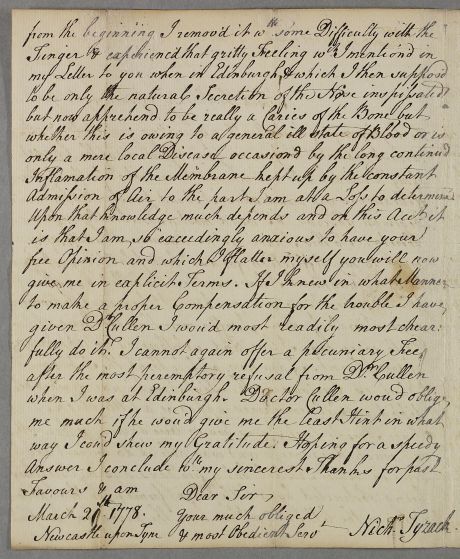 from the beginning I remov'd it wth some Difficulty with the
Finger & experienced that gritty Feeling wch I mention'd in
my Letter to you when in Edinburgh & which I then suppos'd
to be only the natural Secretion of the Nose inspissated
but now apprehend to be really a Caries of the Bone but
whether this is owing to a general ill state of Blood or is
only a mere local Disease occasion'd by the long continued
Inflamation of the Membrane kept up by the constant
Admission of Air to the part I am at a Loss to determine
upon that knowledge much depends and on this Acct it
is that I am so exceedingly anxious to have your
free Opinion and which I flatter myself you will now
give me in explicit Terms. If I knew in what Manner
to make a proper Compensation for the trouble I have
given Dr Cullen I wou'd most readily most chear=
fully do it. I cannot again offer a pecuniary Fee
after the most peremptory refusal from Dr Cullen
when I was at Edinburgh. Doctor Cullen wou'd oblige
me much if he wou'd give me the least Hint in what
way I cou'd shew my Gratitude. Hoping for a speedy
Answer I conclude wth my sincerest Thanks for past
Favours & am Dear Sir
March 1778. Your much obliged
Newcastle upon Tyne & most Obedient Servt Nich. Tyzack